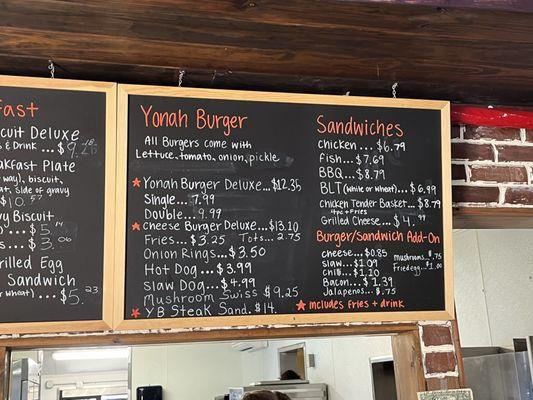 Fast
cuit Deluxe
s & Drink ...$9.
akfast Plate
way), biscuit,
at, side of gravy
...$10.77
vy Biscuit
...$5.14
s...$3.06
rilled Egg
Sandwich
r wheat)...$5.23
Yonah Burger
All Burgers come with
Lettuce, tomato, onion, pickle
★Yonah Burger Deluxe...$12.35
Single...7.99
Double...9.99
★cheese Burger Deluxe...$13.10
Fries...$3.25 Tots...2.75
Onion Rings...$3.50
Hot Dog...$3.99
slaw Dog...$4.99
Mushroom Swiss $9.25
★YB Steak Sand. $14.
Sandwiches
chicken...$6.79
fish...$7.69
BBQ...$8.79
BLT(white or wheat)...$6.99
chicken Tender Basket...$8.79
4pc + Fries
Grilled Cheese...$4.99
Burger/Sandwich Add-On
cheese...$0.85
slaw...$1.09
chili...$1.10
Bacon...$1.39
Jalapenos...$.75
mushrooms..$.75
Fried egg..$1.00
★includes fries + drink